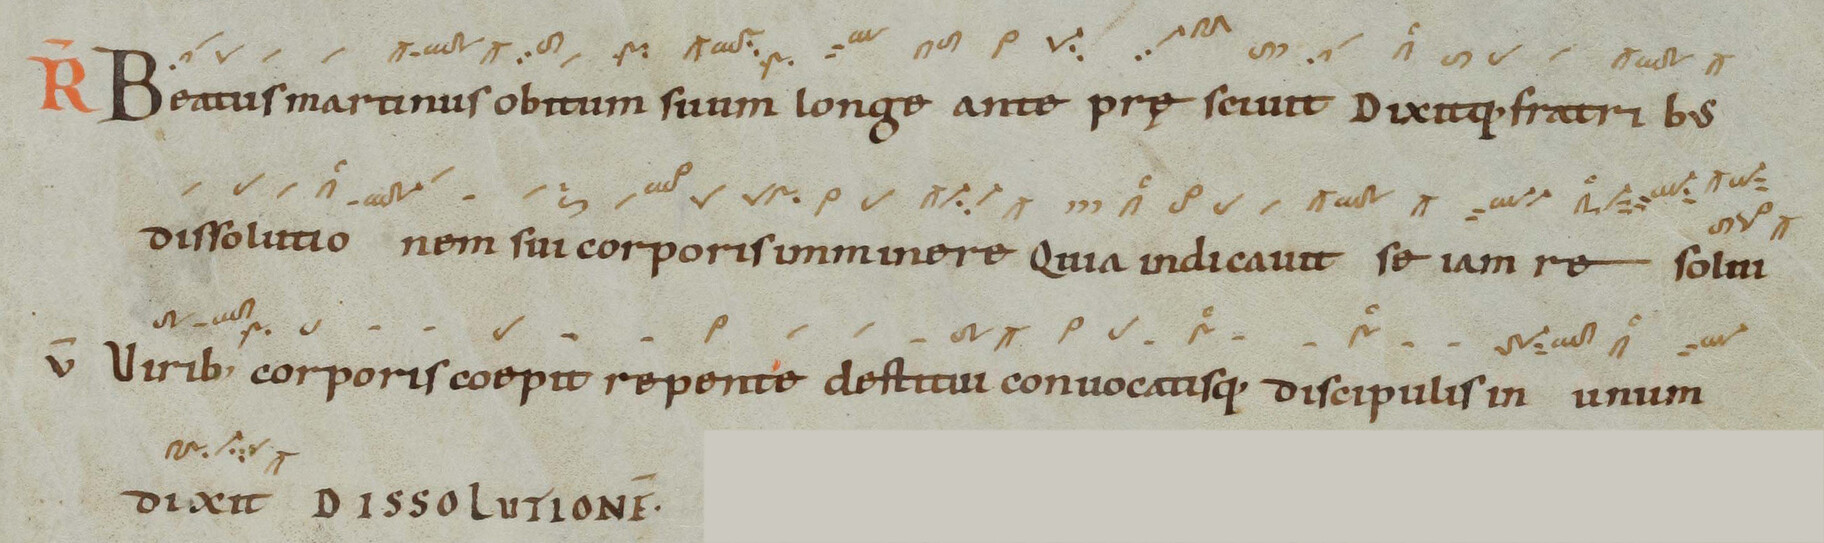 R̄ Beatus martinus obitum suum longe ante pręsciuit Dixitq; fratribs
dissolutionem sui corporis imminere Quia indicauit se iam resolui
v̄ Virib; corporis coepit repente destitui conuocatisq; discipulis in unum
dixit DISSOLUTIONĒ.